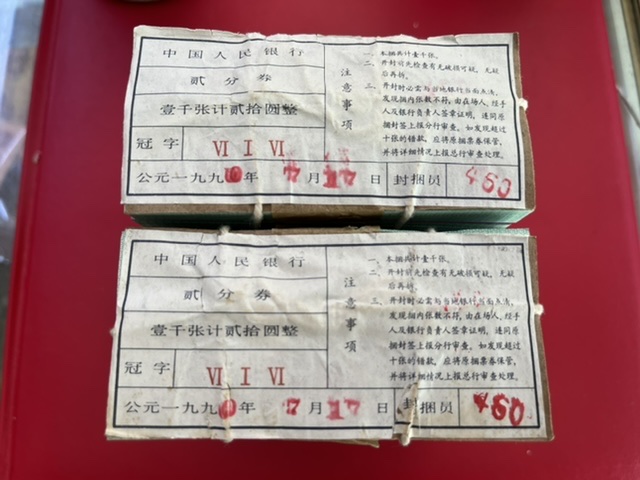 中国人民银行
贰分券
壹千张计贰拾圆整
冠字 VI I VI
公元一九九0年 4月 日 封捆员 450
注意事项
一、本捆共计壹千张。
二、开封前先检查有无破损可疑，无疑
后再拆。
三、开封时必需与当地银行当面点清，
发现捆内张数不符，由在场人、经手
人及银行负责人签章证明，连同原
捆封签上报分行审查。如发现超过
十张的错款，应将原捆票券保管，
并将详细情况上报总行审查处理。
中国人民银行
贰分券
壹千张计贰拾圆整
冠字 VI I VI
公元一九九0年 月 17日 封捆员 450
注意事项
一、本捆共计壹千张。
二、开封前先检查有无破损可疑，无疑
后再拆。
三、开封时必需与当地银行当面点清，
发现捆内张数不符，由在场人、经手
人及银行负责人签章证明，连同原
捆封签上报分行审查。如发现超过
十张的错款，应将原捆票券保管，
并将详细情况上报总行审查处理。